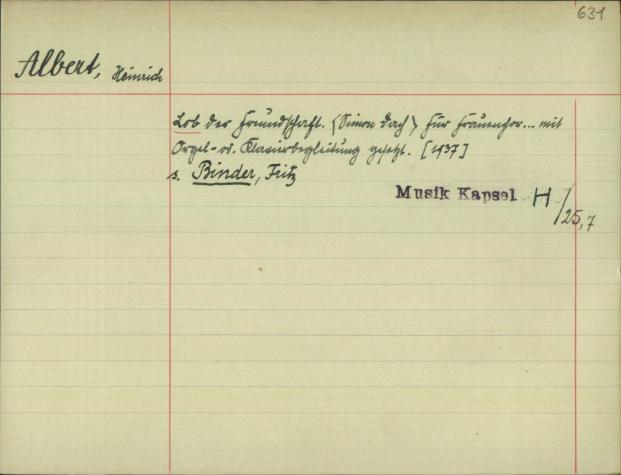 631
Albert, Heinrich
Lob der Freundschaft. (Simon Dach) Für Frauenchor... mit
Orgel- od. Klavierbegleitung gesetzt. [1937]
s. Binder, Fritz
Musik Kapsel H/25,7